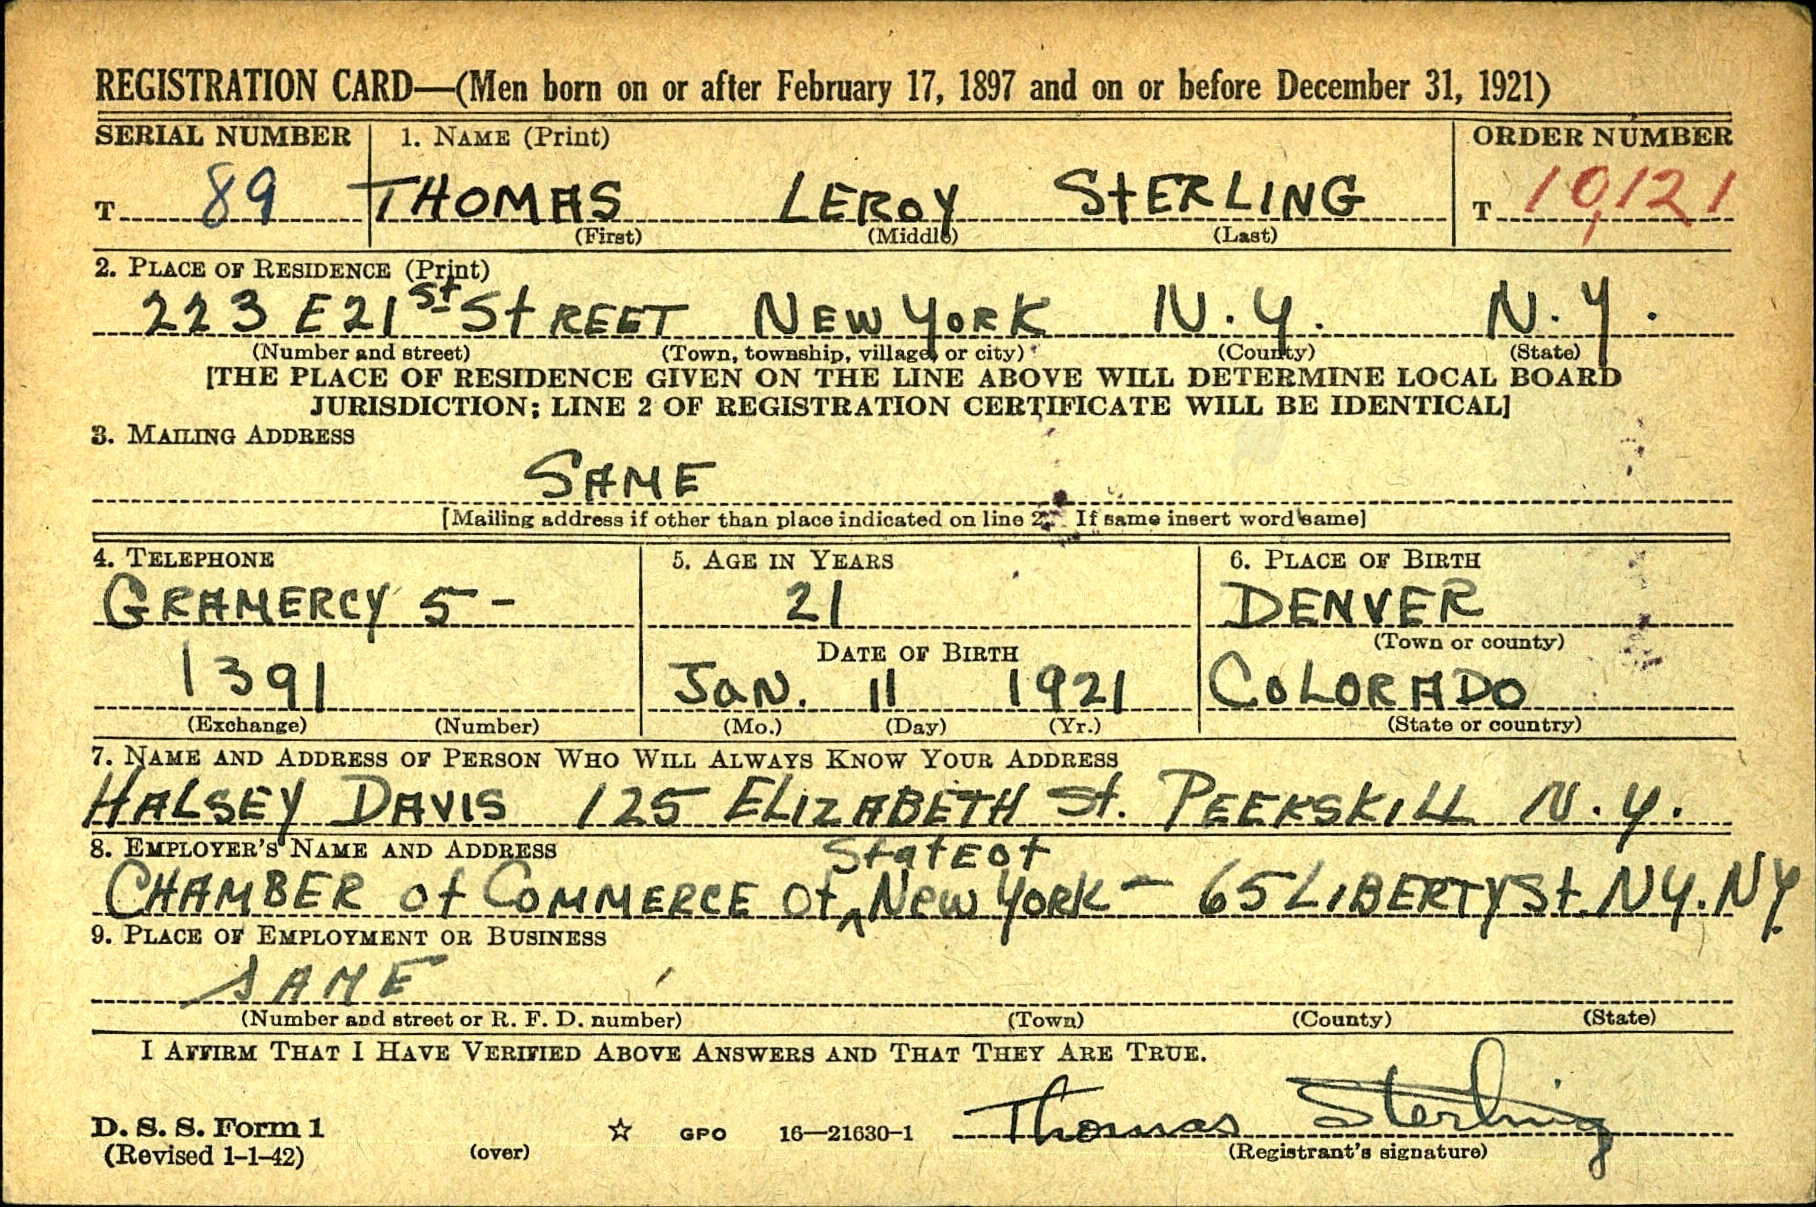 REGISTRATION CARD—(Men born on or after February 17, 1897 and on or before December 31, 1921)
SERIAL NUMBER 1. NAME (Print) ORDER NUMBER
T 89 THOMAS LEROY StERLING T 10,121
(First) (Middle) (Last)
2. PLACE OF RESIDENCE (Print)
223 E 21st StREET NEW YORK N.Y. N.Y.
(Number and street) (Town, township, village, or city) (County) (State)
[THE PLACE OF RESIDENCE GIVEN ON THE LINE ABOVE WILL DETERMINE LOCAL BOARD
JURISDICTION; LINE 2 OF REGISTRATION CERTIFICATE WILL BE IDENTICAL]
3. MAILING ADDRESS
SAME
[Mailing address if other than place indicated on line 2. If same insert word same]
4. TELEPHONE 5. AGE IN YEARS 6. PLACE OF BIRTH
GRAMERCY 5- 21 DENVER
DATE OF BIRTH (Town or county)
1391 JaN. 11 1921 CoLORADO
(Exchange) (Number) (Mo.) (Day) (Yr.) (State or country)
7. NAME AND ADDRESS OF PERSON WHO WILL ALWAYS KNOW YOUR ADDRESS
HALSEY DAVIS 125 ELIZABETH St. PEEKSKILL N.Y.
8. EMPLOYER'S NAME AND ADDRESS StatE of
CHAMBER of COMMERCE Of ^ New YORK - 65 LIBERTY St. NY. NY.
9. PLACE OF EMPLOYMENT OR BUSINESS
SAME
(Number and street or R. F. D. number) (Town) (County) (State)
I AFFIRM THAT I HAVE VERIFIED ABOVE ANSWERS AND THAT THEY ARE TRUE.
Thomas Sterling
D. S. S. Form 1
(Revised 1-1-42) (over) ☆ GPO 16—21630-1 (Registrant's signature)